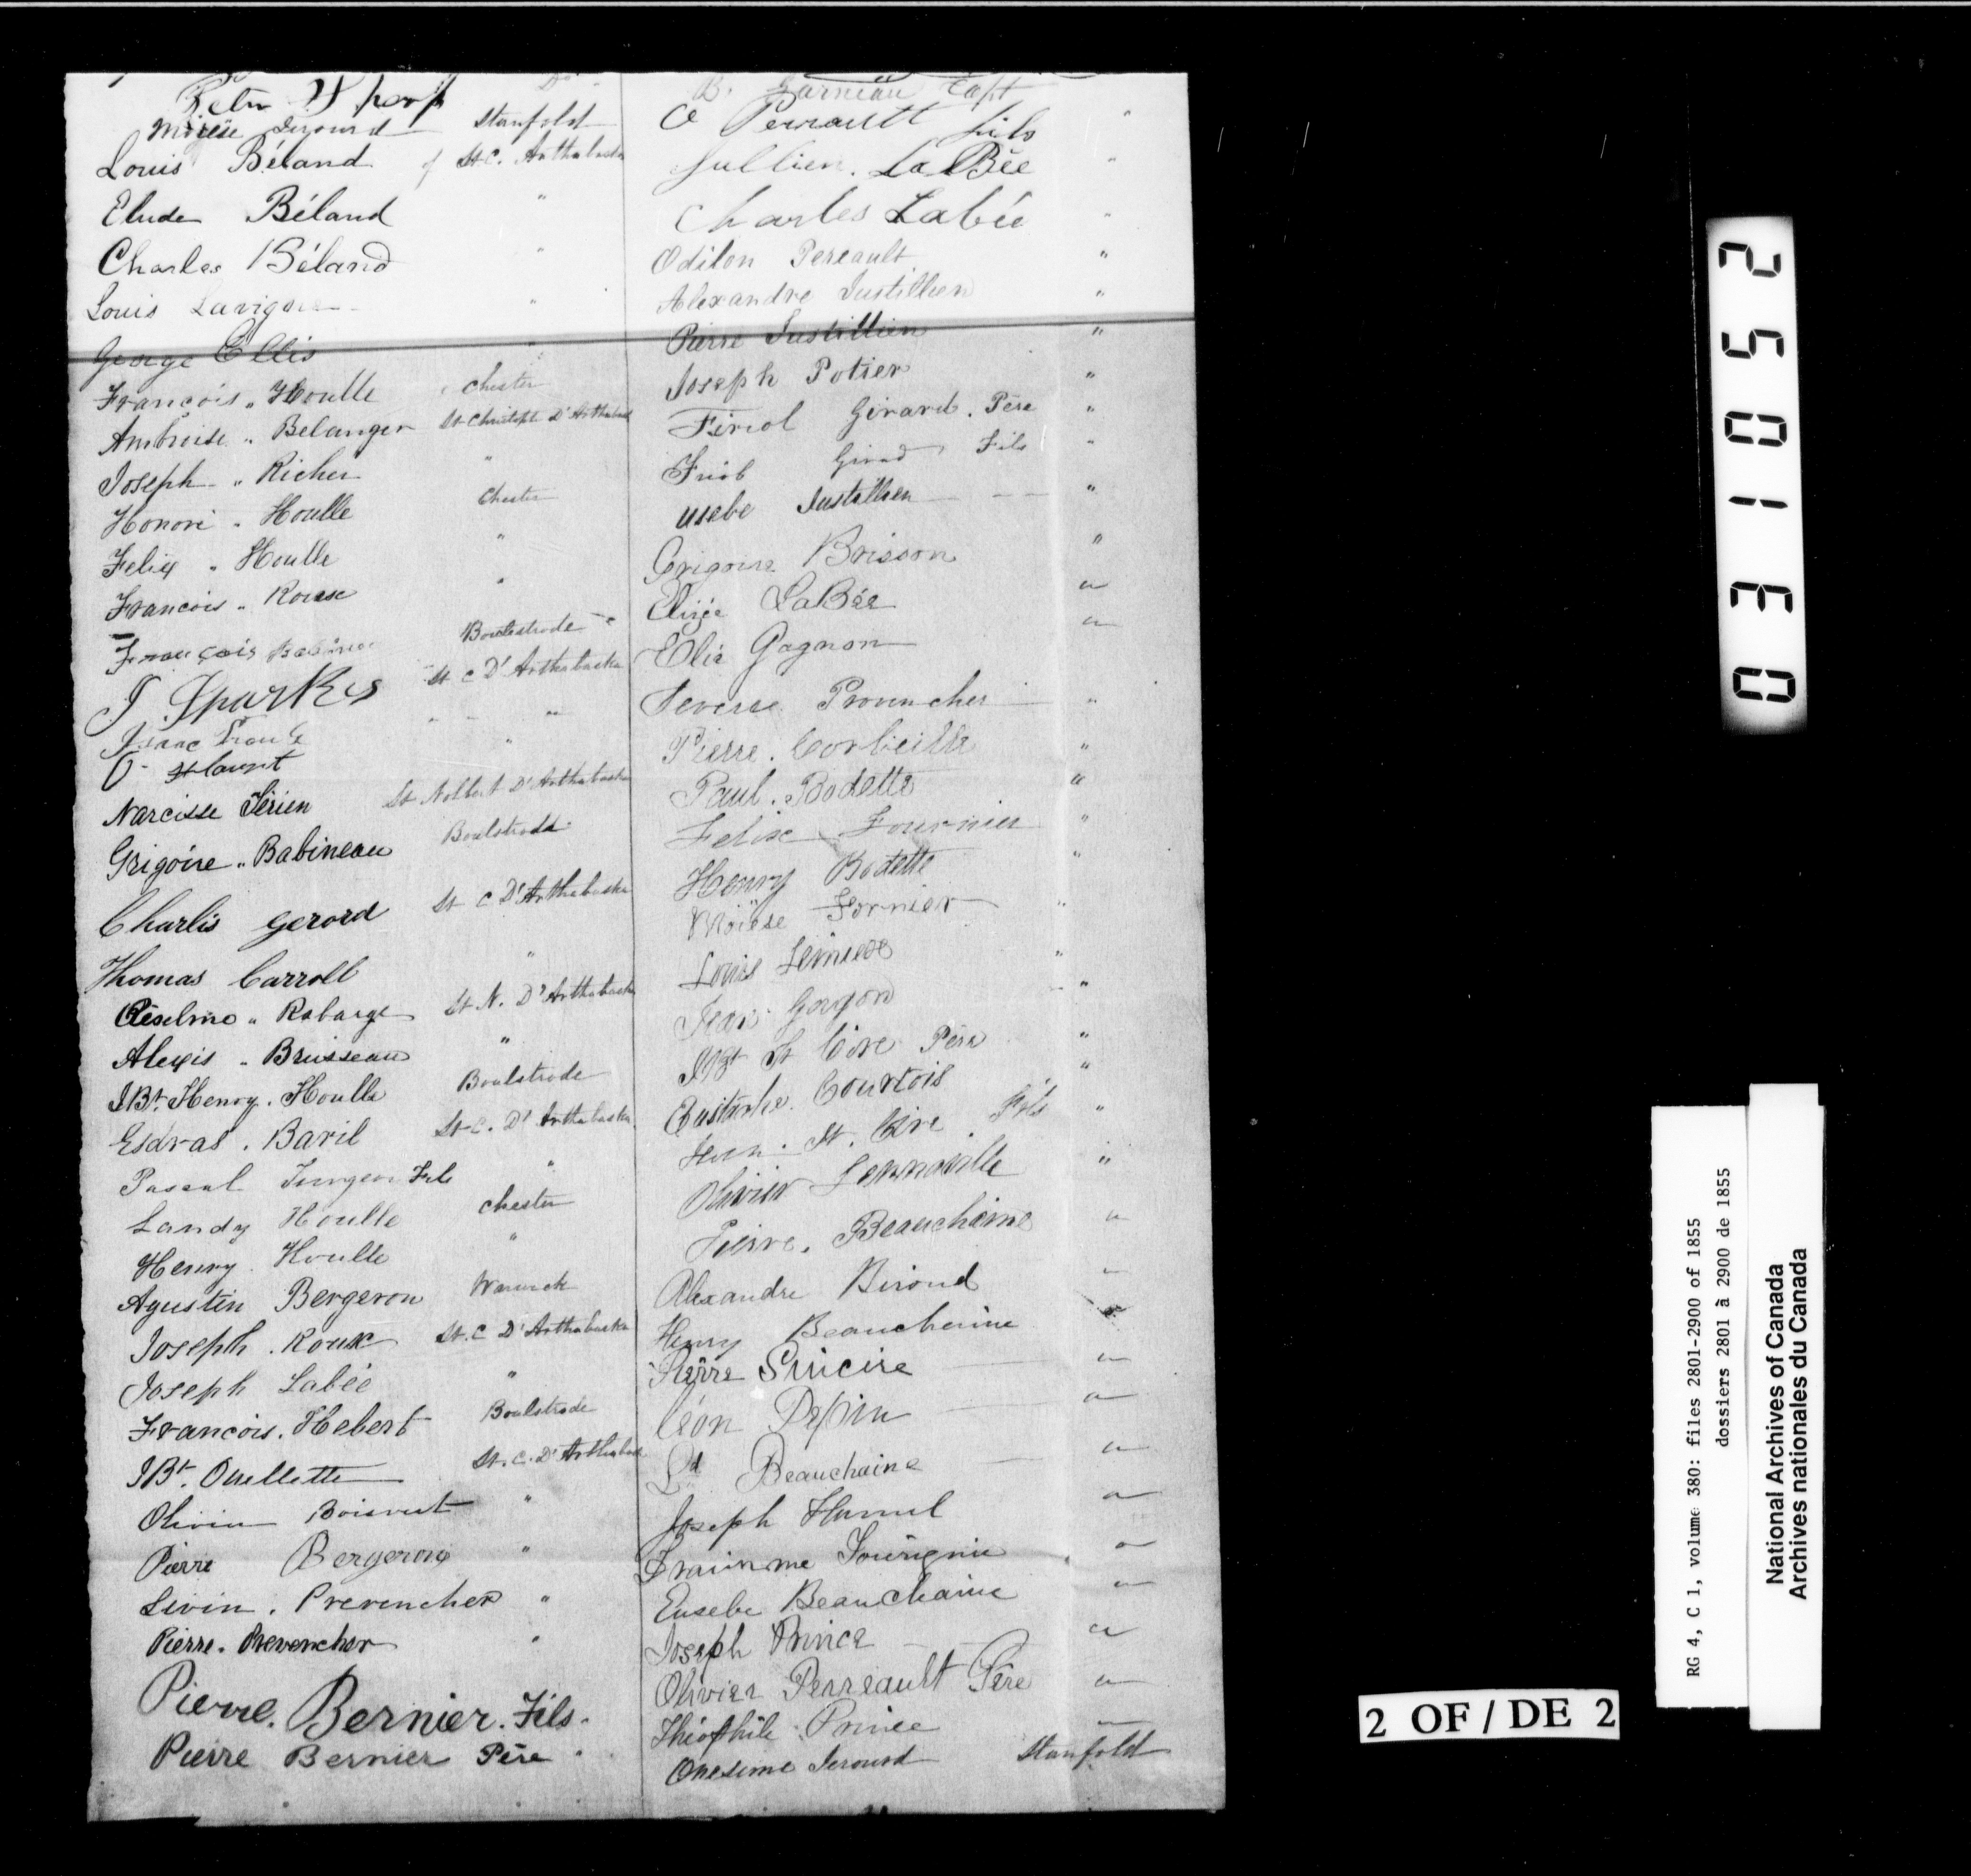 Do
Moïse Jerourd Stanfold
Louis Béland of St C. Arthabaska
Elude Béland "
Charles Béland "
Louis Lavigne "
George Ellis "
François " Houlle Chester
Ambroise " Belanger St Christophe D'Arthabask
Joseph " Richer "
Honoré " Houlle Chester
Felix " Houlle "
François " Rouse "
François Boulstrode
J Sparkes St C D'Arthabaska
Isaac " "
St Laurt "
Narcisse Térien St Norbert D'Arthabaska
Grigoire " Babineau Boulstrode
Charlis Gerord St C D'Arthabaska
Thomas Carroll "
Anselme " Robarge St N. D'Arthabaska
Alexis " Brusseau "
JBt. Henry. Houlle Boulstrode
Esdras. Baril St C. D'Arthabaska
Pascal Turgeon Fils "
Landy Houlle Chester
Henry Houlle "
Agustin Bergeron Warwick
Joseph. Roux St. C D'Arthabaska
Joseph Labée "
François. Hebert Boulstrode
JBt. Ouellette St. C. D'Arthabask
Olivier Boisvert "
Pierre Bergeron "
Livin. Prevencher "
Pierre. Prevencher "
Pierre. Bernier. Fils.
Pierre Bernier Père "
B. Garneau Capt
O Perrault fils "
Jullien. LaBée "
Charles Labée "
Odilon Pereault "
Alexandre Justillien "
Pierre Justillien "
Joseph Potier "
Firiol Girard. Père "
Girad Fils "
usebe Justillien "
Grigoire Brisson "
Elizée LaBée "
Elie Gagnon "
Severe Provencher "
Pierre. Corbeille "
Paul. Bodette "
Felix Fournier "
Henry Bodette "
Moïese Fornier "
Louis Lemieux "
Jean "
JBt St Cire Père "
Eustache. Courtois "
Jean. St. Cire. Fils "
Olivier Lennoville "
Pierre. Beauchême "
Alexandre Biround "
Henry Beauchenine "
Pierre Sincire "
Léon Pepin "
Ld Beauchaine "
Joseph Hamel "
Sourignie "
Eusebe Beauchaine "
Joseph Prince "
Olivier Perreault Père "
Théophile Prince "
Onesime Jerourd Stanfold
031052
2 OF/DE 2
RG 4, C 1, volume 380: files 2801-2900 of 1855
dossiers 2801 à 2900 de 1855
National Archives of Canada
Archives nationales du Canada